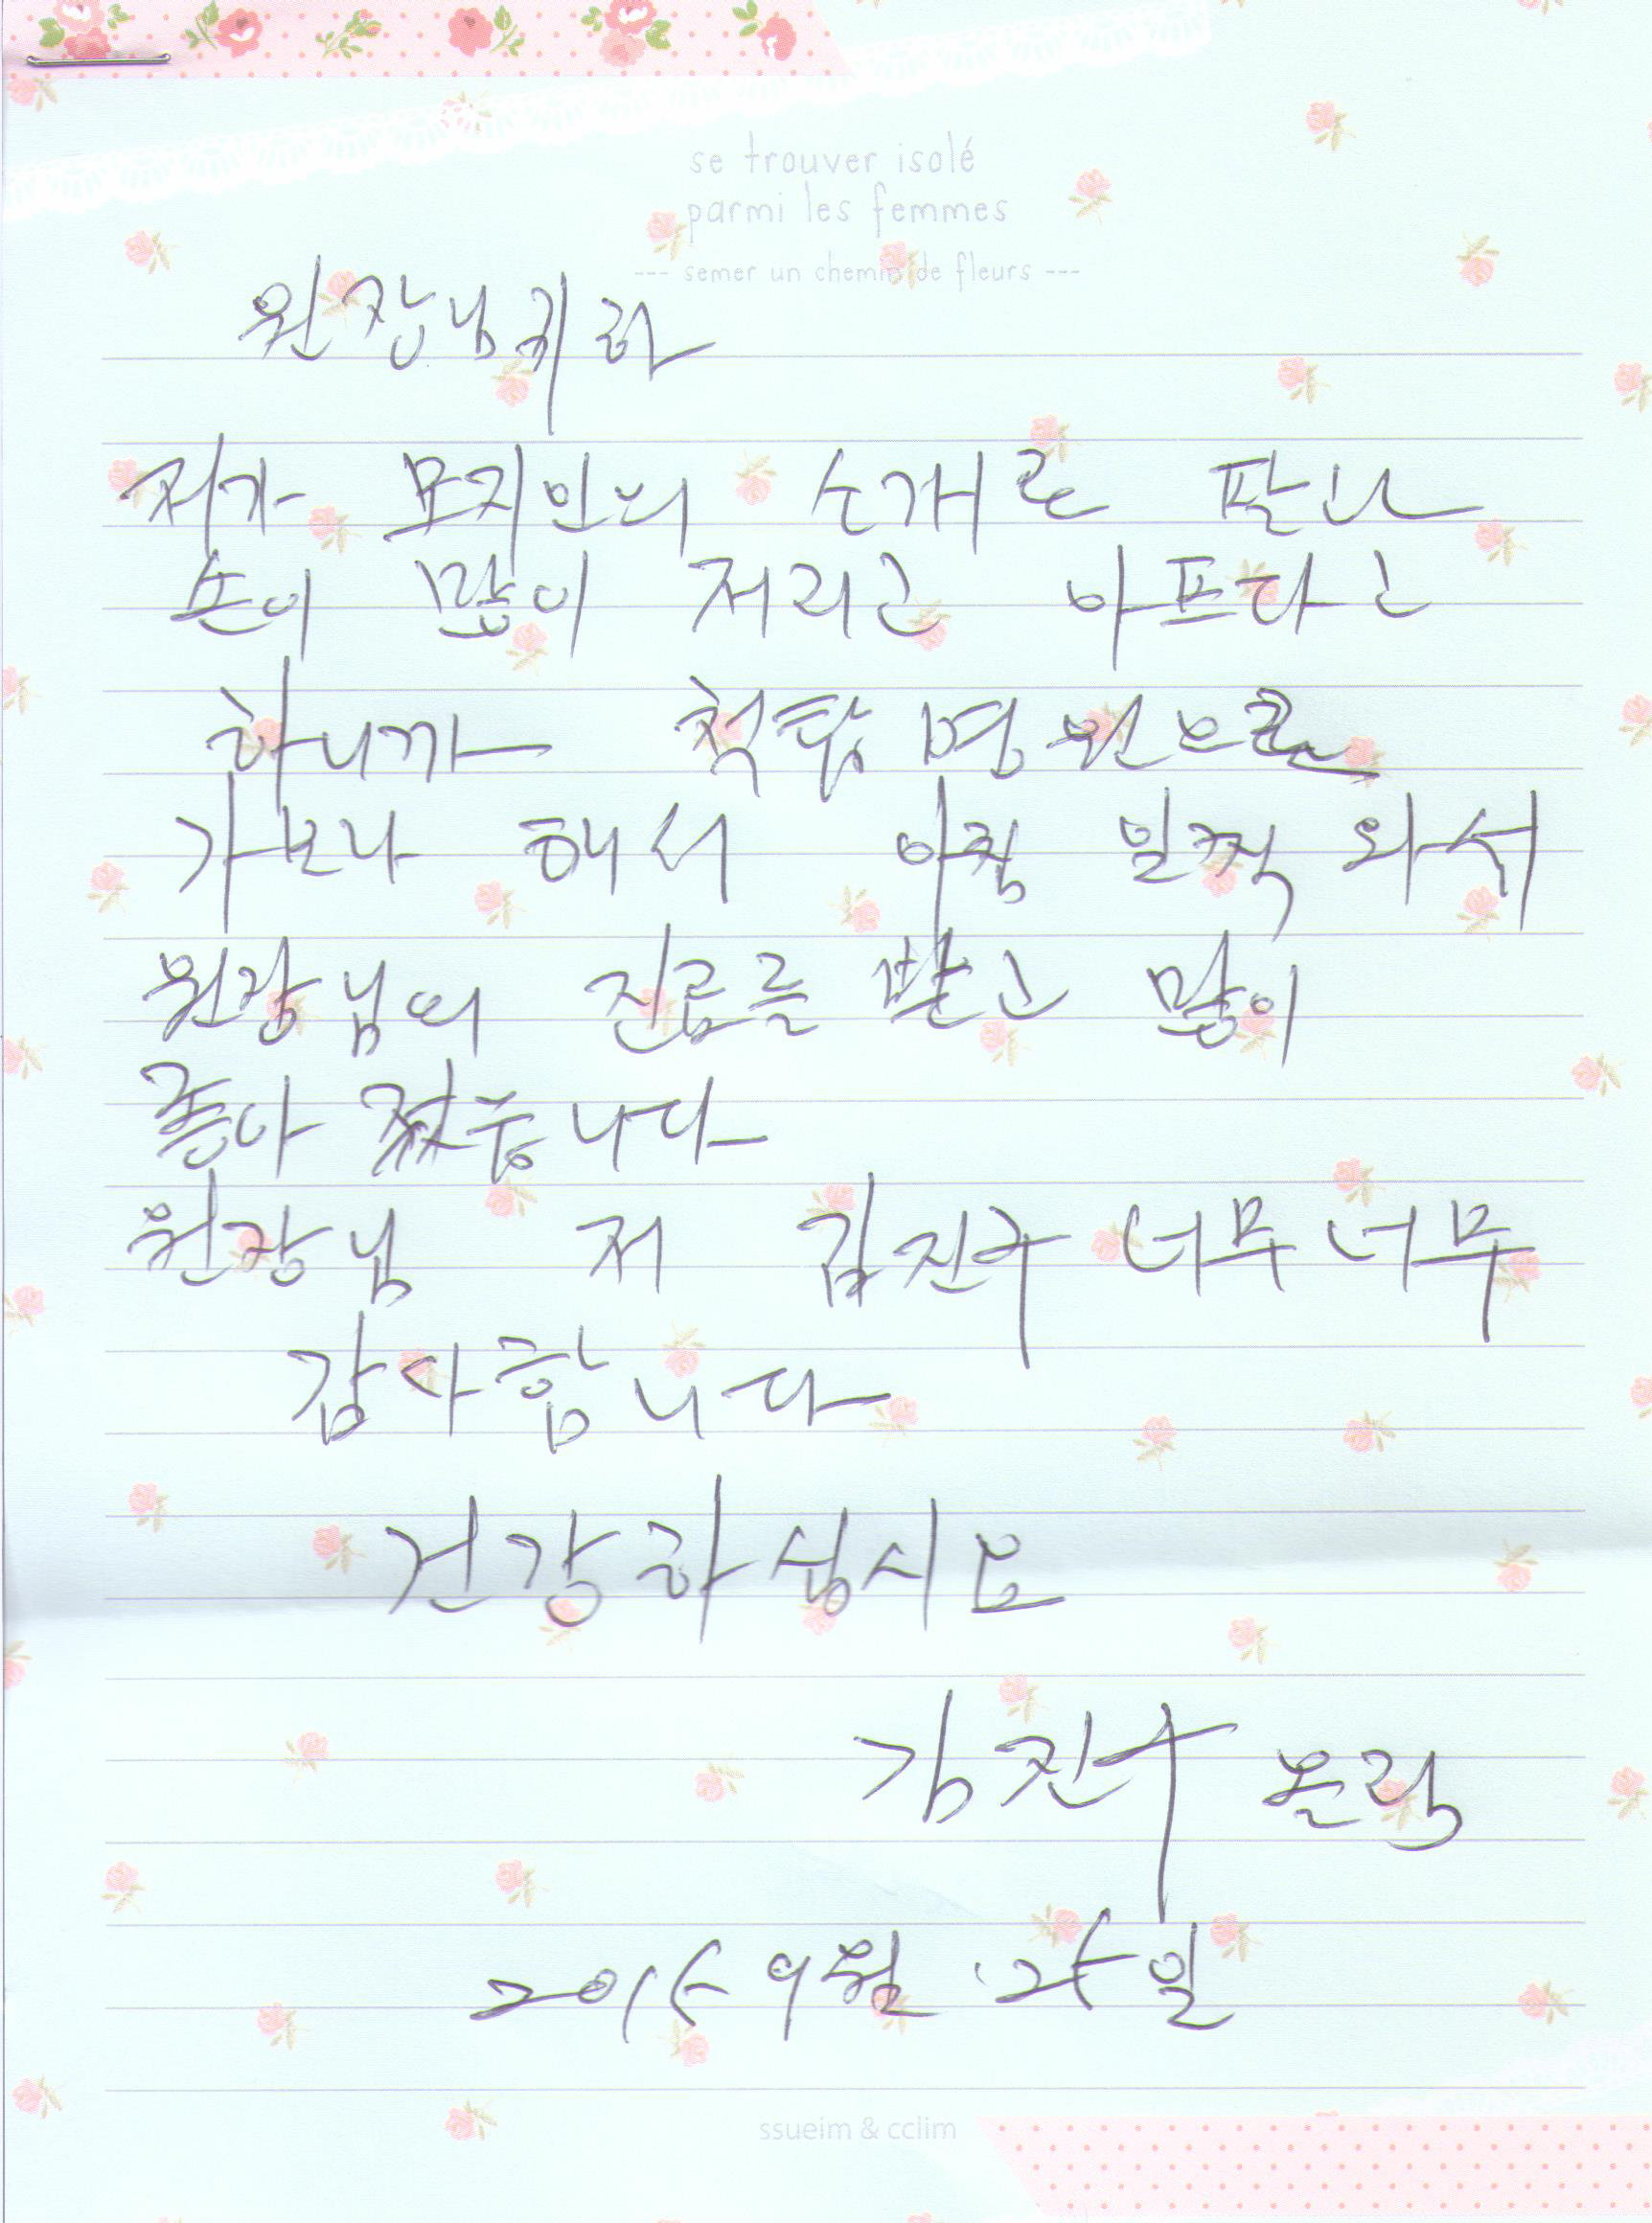 se trouver isolé
parmi les femmes
--- semer un chemin de fleurs ---
원장님귀하
저가 모지인의 소개로 팔과
손이 많이 저리고 아프다고
하니까 척탑병원으로
가보라 해서 아침 일찍 와서
원장님의 진료를 받고 많이
좋아 졌습니다
원장님 저 김진수 너무너무
감사합니다
건강하십시요
김진수 올림
2015 9월 25일
ssueim & cclim